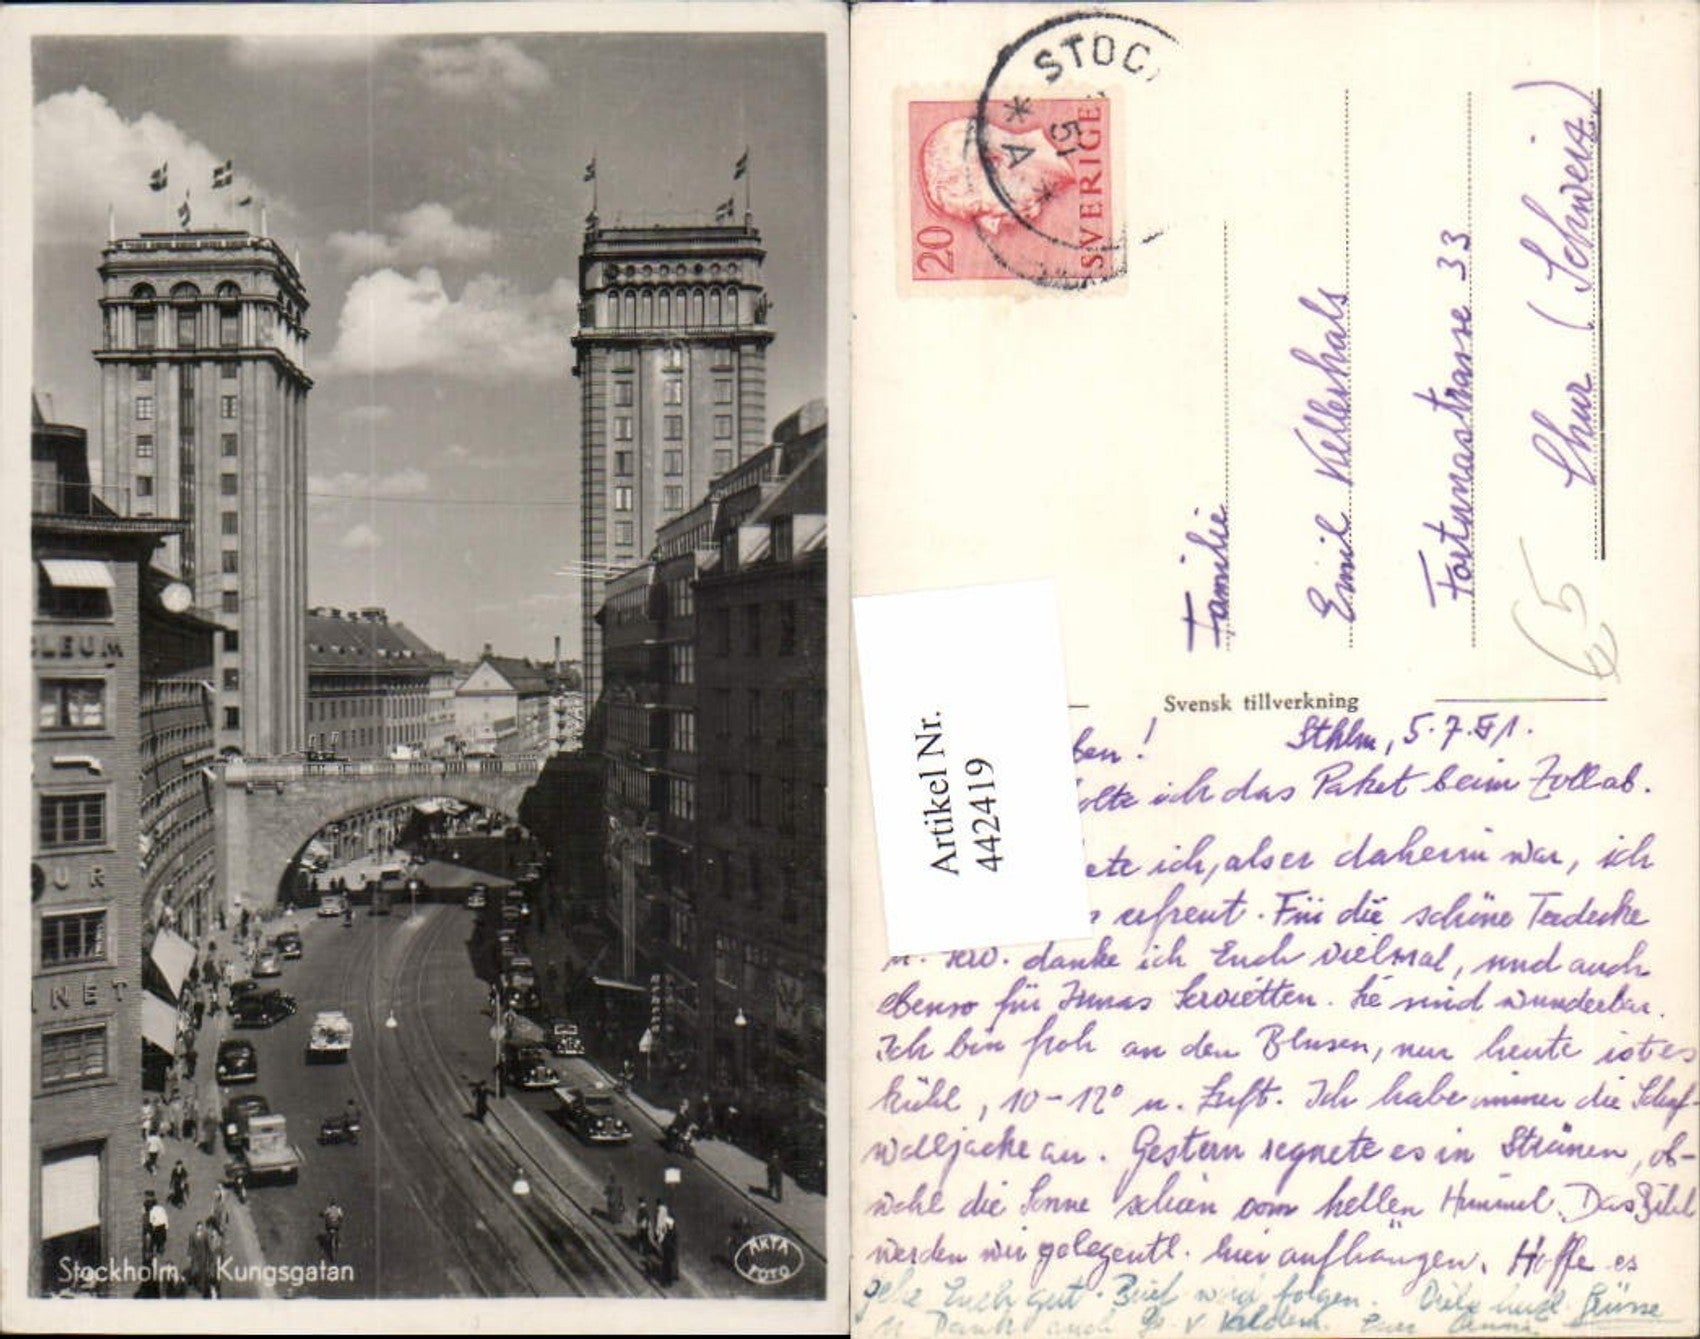 LEUM
UR
NET
Stockholm. Kungsgatan
ÄKTA
FOTO
STOC
51
* A *
20
SVERIGE
Familie
Emil Kellerhals
Fortunastrasse 33
Chur (Schweiz)
65
Svensk tillverkning
Artikel Nr.
442419
ben! Sthlm, 5.7.51.
olte ich das Paket beim Zoll ab.
ete ich, als er daheim war, ich
erfreut. Für die schöne Teedecke
danke ich Euch vielmal, und auch
ebenso für Servietten. Sie sind wunderbar.
Ich bin froh an den Blusen, nur heute ist es
kühl, 10-12° u. Luft. Ich habe immer die Schaf-
wolljacke an. Gestern regnete es in Strömen, ob-
wohl die Sonne schien vom hellen Himmel. Das Bild
werden wir gelegentl. hier aufhängen. Hoffe es
gehe Euch gut. Brief wird folgen. Viele Grüsse
u. Dank auch v. Kindern. Eure